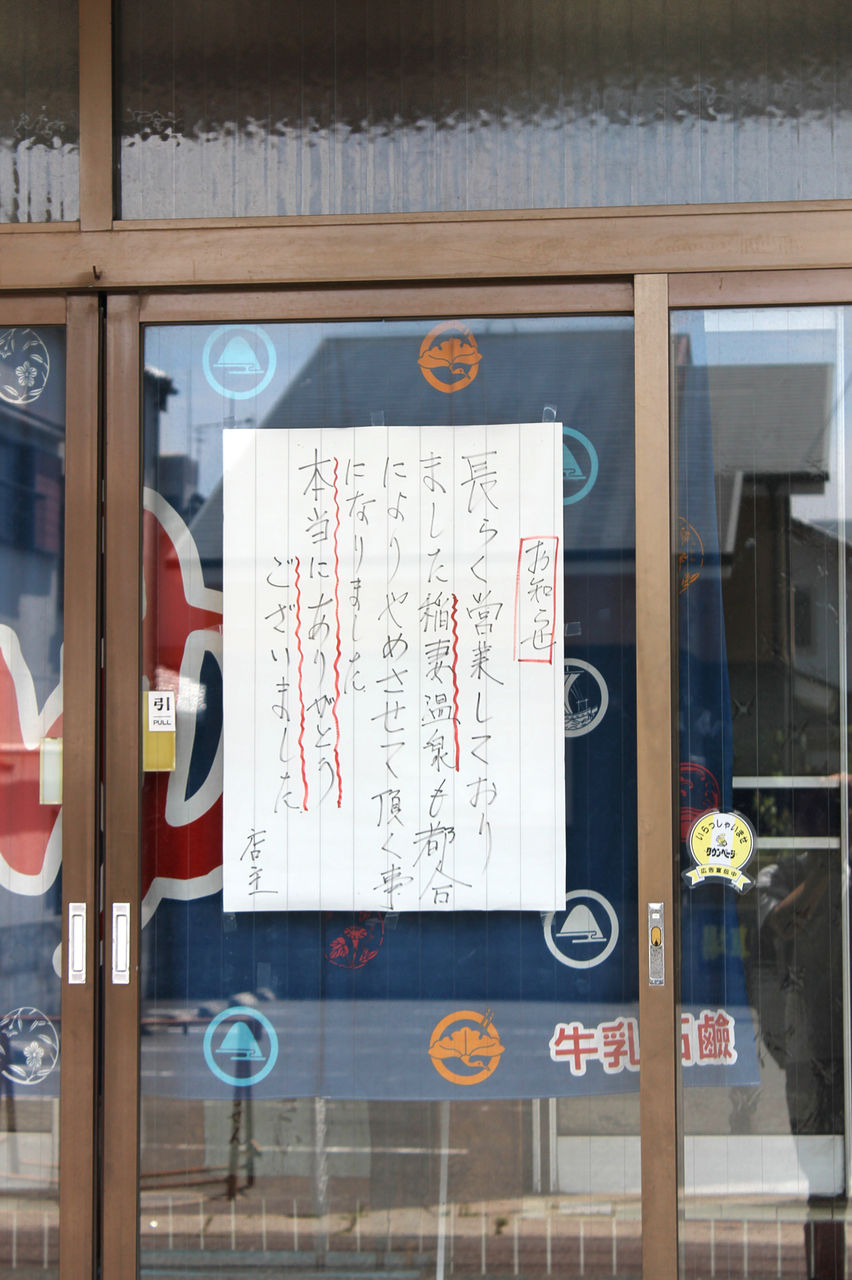 お知らせ
長らく営業しており
ました稲妻温泉も都合
によりやめさせて頂く事
になりました
本当にありがとう
ございました
店主
引
PULL
いらっしゃいませ
タウンページ
広告宣伝中
牛乳石鹸